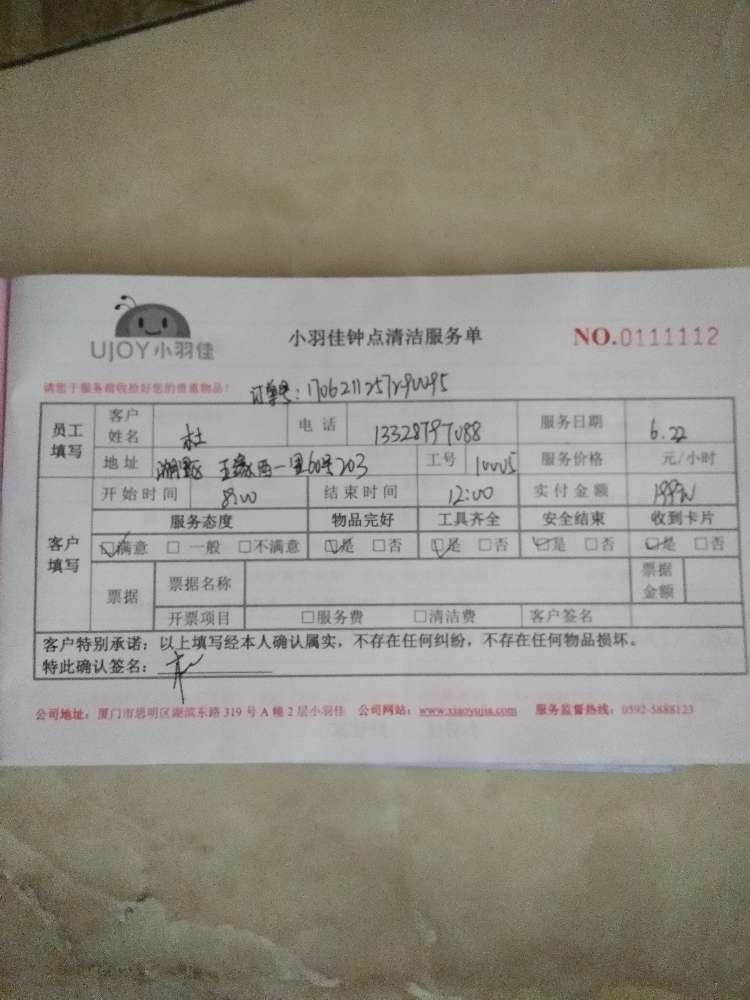 UJOY小羽佳
小羽佳钟点清洁服务单
NO.0111112
请您于服务前收捡好您的贵重物品!
订单号:
员工填写 客户姓名 杜 电话 服务日期 6.22
地址 湖里区 西一里60号203 工号 10005 服务价格 元/小时
客户填写 开始时间 8:00 结束时间 12:00 实付金额 199元
服务态度 物品完好 工具齐全 安全结束 收到卡片
☑满意 □一般 □不满意 ☑是 □否 ☑是 □否 ☑是 □否 ☑是 □否
票据 票据名称 票据金额
开票项目 □服务费 □清洁费 客户签名
客户特别承诺:以上填写经本人确认属实,不存在任何纠纷,不存在任何物品损坏。
特此确认签名:
公司地址:厦门市思明区湖滨东路 319 号 A 幢 2 层小羽佳 公司网站:www.xiaoyujia.com 服务监督热线:0592-5888123